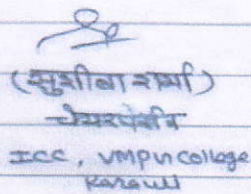 (सुशीला शर्मा)
चेयरपर्सन
ICC, VMPU College
Karauli